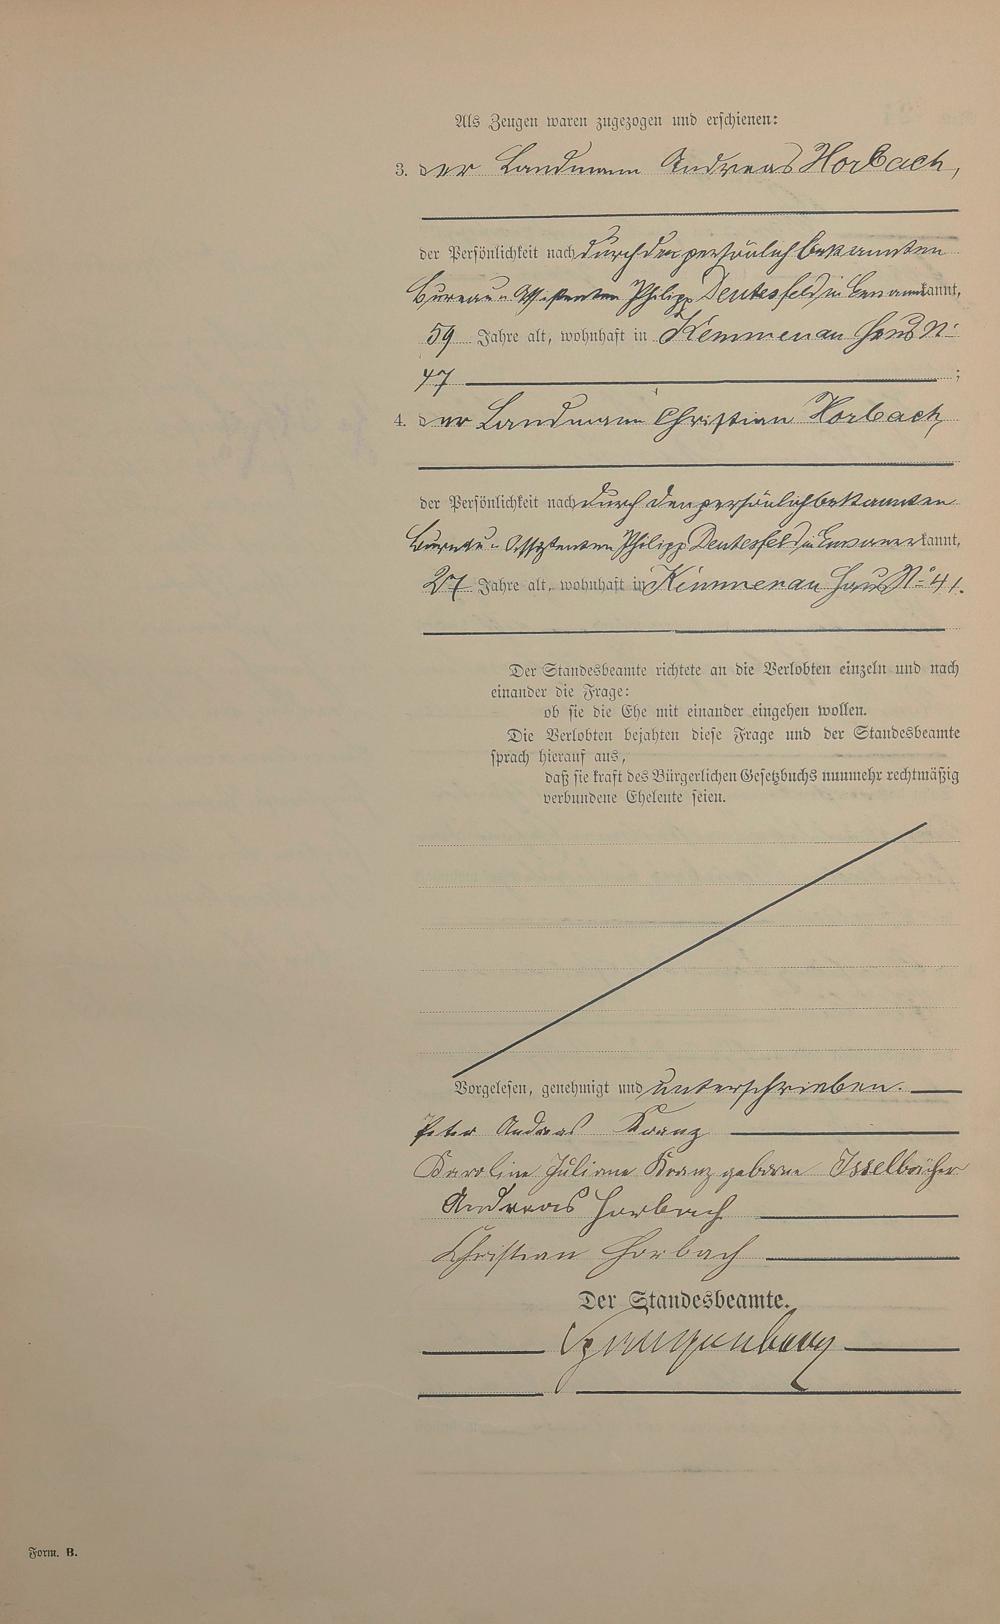 Als Zeugen waren zugezogen und erschienen:
3. der Landmann Andreas Horbach,
der Persönlichkeit nach durch den persönlich bekannten
Bureau-Assistenten Philipp Deutesfeld in Ems anerkannt,
59 Jahre alt, wohnhaft in Kemmenau Haus No
47 ;
4. der Landmann Christian Horbach,
der Persönlichkeit nach durch den persönlich bekannten
Bureau-Assistenten Philipp Deutesfeld in Ems anerkannt,
27 Jahre alt, wohnhaft in Kemmenau Haus No 41.
Der Standesbeamte richtete an die Verlobten einzeln und nach
einander die Frage:
ob sie die Ehe mit einander eingehen wollen.
Die Verlobten bejahten diese Frage und der Standesbeamte
sprach hierauf aus,
daß sie kraft des Bürgerlichen Gesetzbuchs nunmehr rechtmäßig
verbundene Eheleute seien.
Vorgelesen, genehmigt und unterschrieben.
Peter Andreas Kranz
Karoline Juliane Kranz geborne Isselbächer
Andreas Horbach
Christian Horbach
Der Standesbeamte.
Form. B.